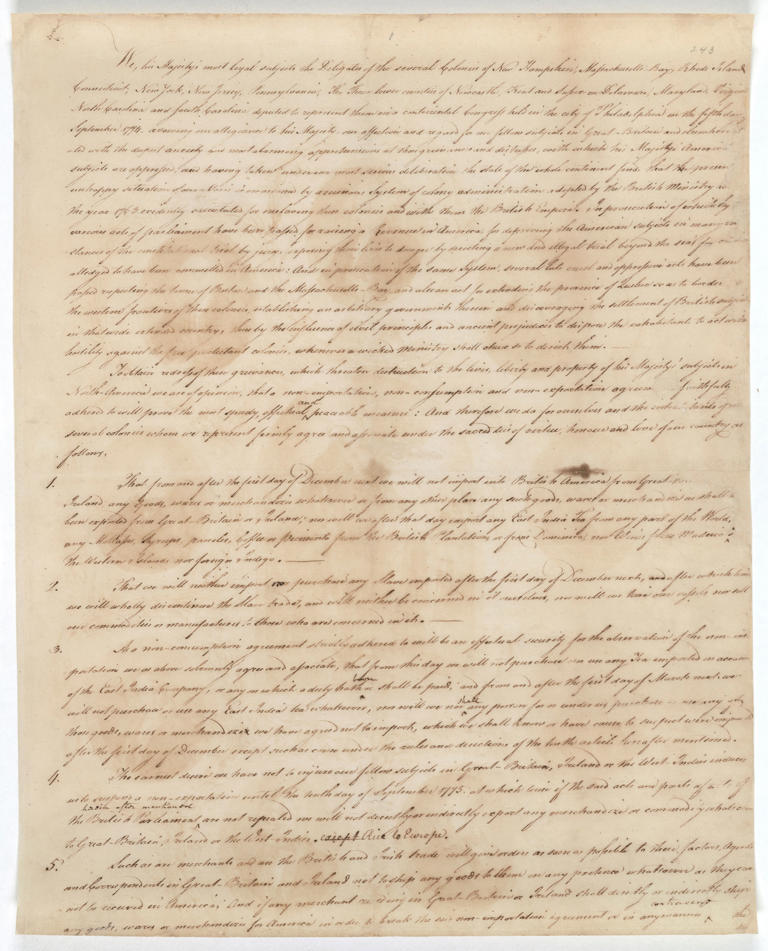 243
We, his Majesty's most loyal subjects the Delegates of the several Colonies of New Hampshire, Massachusetts Bay, Rhode Island
Connecticut, New York, New Jersey, Pennsylvania, The Three lower counties of Newcastle, Kent and Sussex on Delaware, Maryland, Virginia
North Carolina and South Carolina deputed to represent them in a continental Congress held in the city of Philadelphia on the fifth day
September 1774. avowing our allegiance to his Majesty, our affection and regard for our fellow subjects in Great-Britain and elsewhere
ted with the deepest anxiety and most alarming apprehensions at those grievances and distresses, with which his Majesty's American
subjects are oppressed, and having taken under our most serious deliberation the state of the whole continent find, that the present
unhappy situation of our affairs is occasioned by a ruinous system of colony administration adopted by the British Ministry in
the year 1763 evidently calculated for enslaving these colonies and with them the British Empire. In prosecution of which
various acts of parliament have been passed for raising a Revenue in America, for depriving the American subjects in many in
stances of the constitutional trial by jury, exposing their lives to danger by directing a new and illegal trial beyond the seas for
alledged to have been committed in America: And in prosecution of the same System, several late cruel and oppressive acts have been
passed respecting the town of Boston and the Massachusetts-Bay, and also an act for extending the province of Quebec so as to border
the western frontiers of these colonies, establishing an arbitrary government therein and discouraging the settlement of British subjects
in that wide extended country; thus by the influence of civil principles and ancient prejudices to dispose the inhabitants to act with
hostility against the free protestant colonies, whenever a wicked Ministry shall chuse so to direct them.
To obtain redress of these grievances, which threaten destruction to the lives, liberty and property of his Majesty's subjects in
North-America we are of opinion, that a non-importation, non-consumption and non-exportation agreement faithfully
adhered to will prove the most speedy, effectual and peaceable measure: And therefore we do for ourselves and the inhabitants of
several colonies whom we represent firmly agree and associate under the sacred ties of virtue, honour and love of our country as
follows.
1. That from and after the first day of December next we will not import into British America from Great
Ireland any Goods, wares or merchandize whatsoever or from any other place any such goods, wares or merchandize as shall
been exported from Great-Britain or Ireland; nor will we after that day import any East India Tea from any part of the World,
any Molasses, Syrups, paneles, Coffee or Piemento from the British Plantations or from Dominica, nor Wines from Madeira
the Western Islands nor foreign Indigo.
2. That we will neither import nor purchase any Slave imported after the first day of December next, and after which time
we will wholly discontinue the slave trade, and will neither be concerned in it ourselves, nor will we hire our vessels nor sell
our commodities or manufactures to those who are concerned in it.
3. As a non-consumption agreement strictly adhered to will be an effectual security for the observation of the non-im
portation we as above solemnly agree and associate, that from this day we will not purchase or use any Tea imported on account
of the East India Company, or any on which a duty hath been or shall be paid; and from and after the first day of March next we
will not purchase or use any East India Tea whatever, nor will we nor shall any person for or under us purchase or use any of
those goods, wares or merchandize we have agreed not to import, which we shall know or have cause to suspect were imported
after the first day of December except such as come under the rules and directions of the tenth article hereafter mentioned.
4. The earnest desire we have not to injure our fellow subjects in Great-Britain, Ireland or the West Indies induces
us to suspend a non-exportation until the tenth day of September 1775. at which time if the said acts and parts of acts of
the British Parliament herein after mentioned are not repealed we will not directly or indirectly export any merchandize or commodity whatsoever
to Great-Britain, Ireland or the West Indies except Rice to Europe.
5. Such as are merchants and use the British and Irish trade will give orders as soon as possible to their factors, Agents
and Correspondents in Great-Britain and Ireland not to ship any goods to them on any pretence whatsoever as they can
not be received in America; And if any merchant residing in Great-Britain or Ireland shall directly or indirectly ship
any goods, wares or merchandize for America in order to break the said non-importation agreement or in any manner contravene the